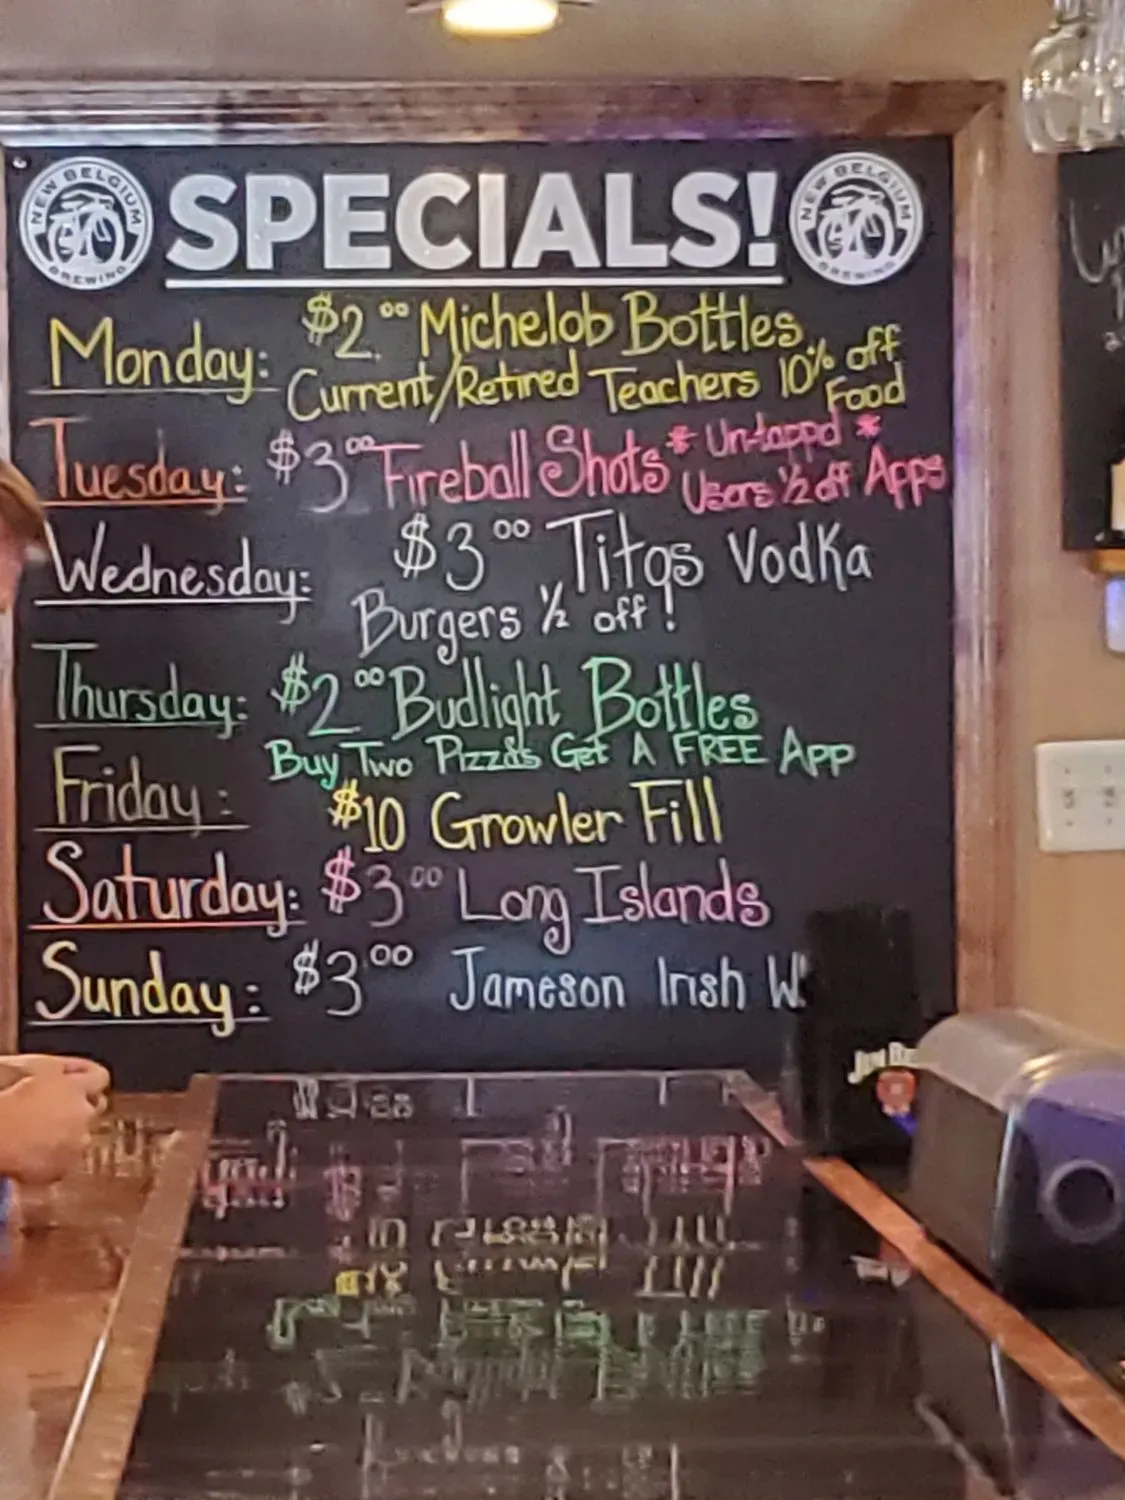 NEW BELGIUM BREWING SPECIALS! NEW BELGIUM BREWING
Monday: $2.00 Michelob Bottles
Current/Retired Teachers 10% off Food
Tuesday: $3.00 Fireball Shots * Untappd *
Users ½ off Apps
Wednesday: $3.00 Titos Vodka
Burgers ½ off!
Thursday: $2.00 Budlight Bottles
Buy Two Pizzas Get A FREE App
Friday: $10 Growler Fill
Saturday: $3.00 Long Islands
Sunday: $3.00 Jameson Irish